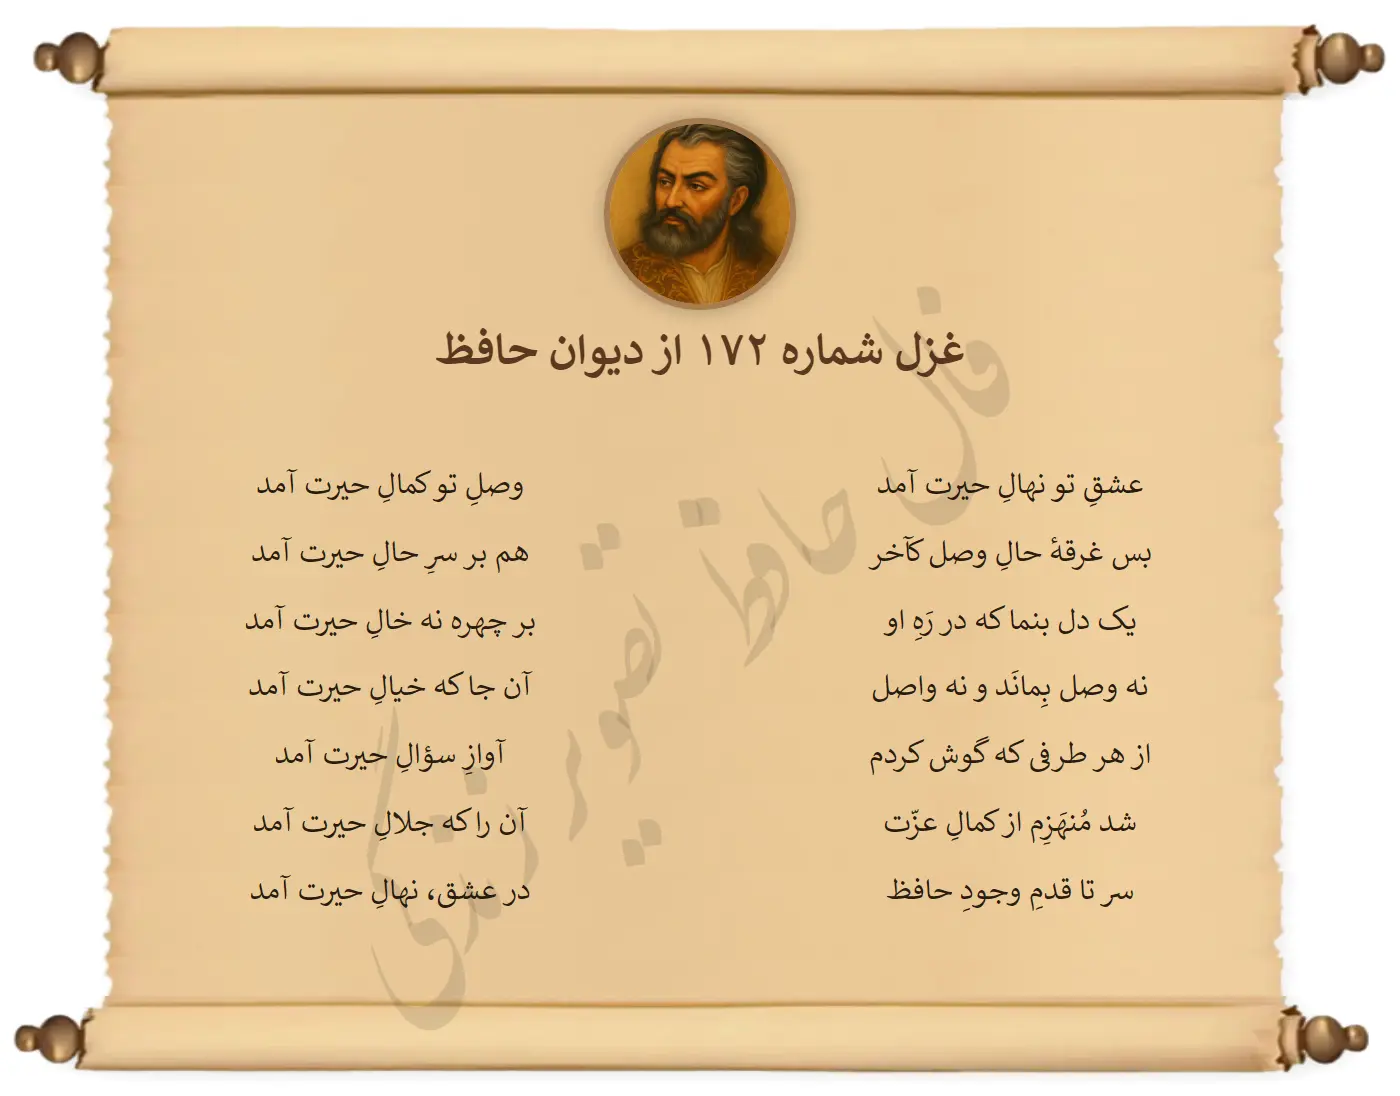 غزل شماره ۱۷۲ از دیوان حافظ
عشقِ تو نهالِ حیرت آمد
وصلِ تو کمالِ حیرت آمد
بس غرقهٔ حالِ وصل کآخر
هم بر سرِ حالِ حیرت آمد
یک دل بنما که در رَهِ او
بر چهره نه خالِ حیرت آمد
نه وصل بِمانَد و نه واصل
آن جا که خیالِ حیرت آمد
از هر طرفی که گوش کردم
آوازِ سؤالِ حیرت آمد
شد مُنهَزِم از کمالِ عزّت
آن را که جلالِ حیرت آمد
سر تا قدمِ وجودِ حافظ
در عشق، نهالِ حیرت آمد
فال حافظ تصویر زندگی